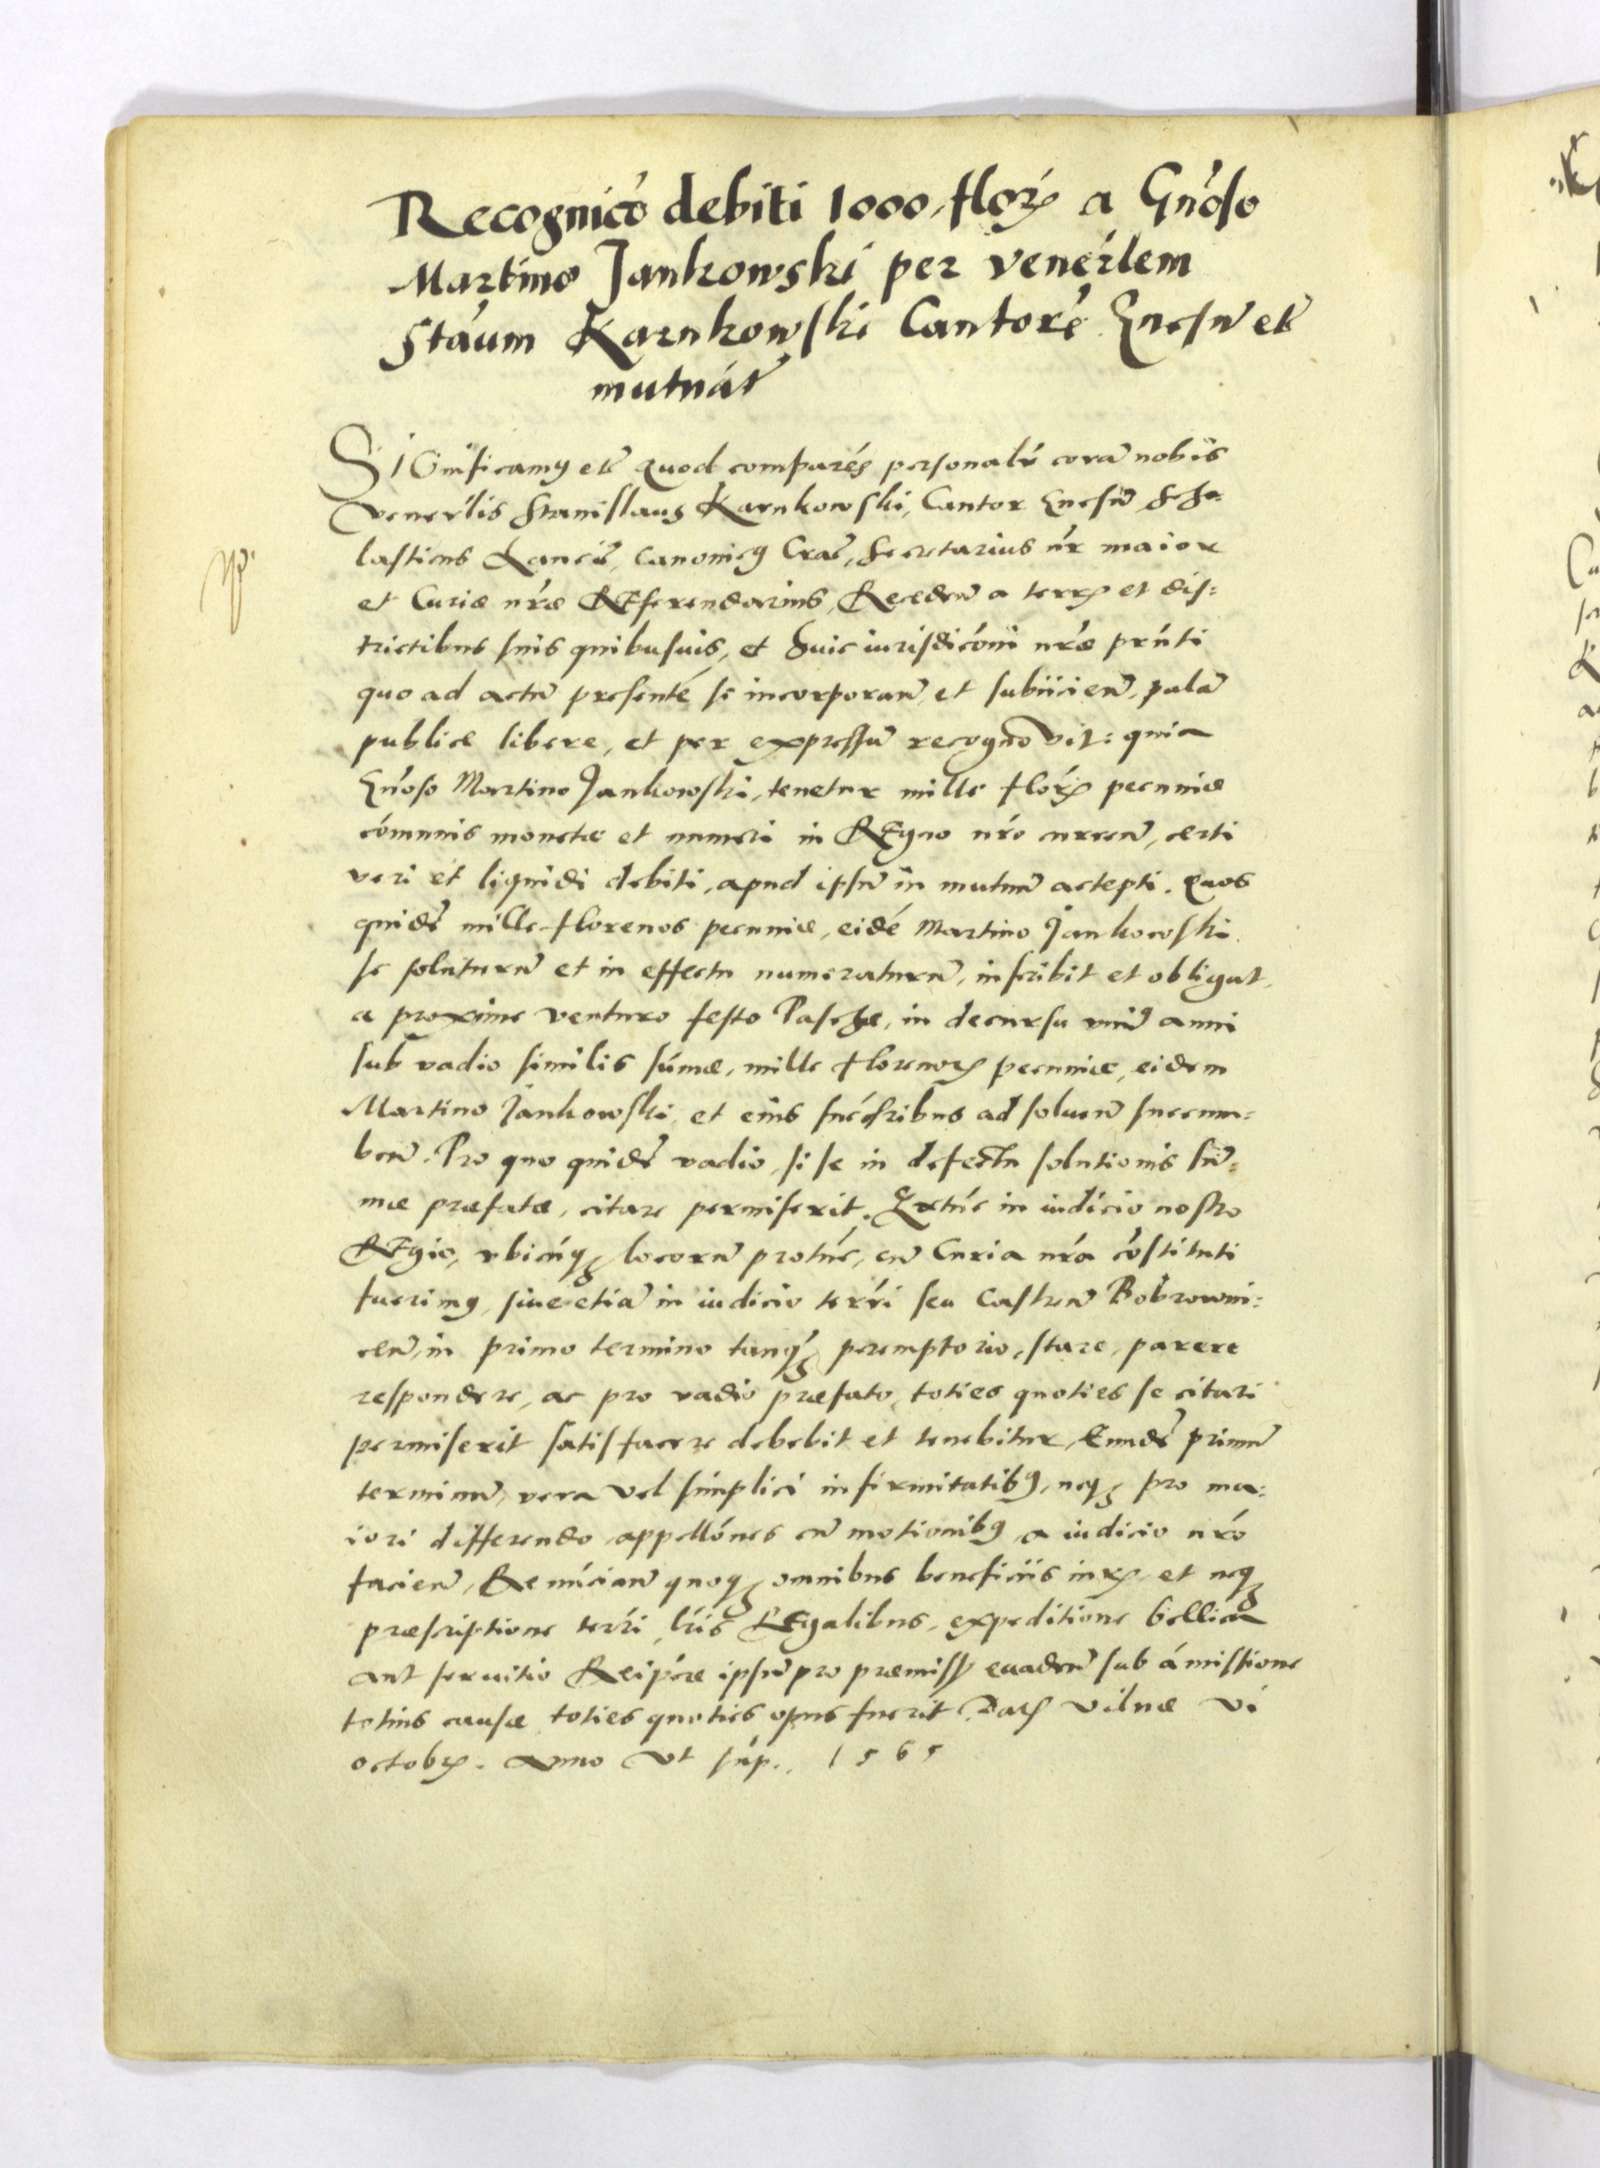 Recognicó debiti 1000 flor̃ a Gnóso
Martino Jankowski per venerlem
Stáum Karnkowski Cantorẽ Gnesn̄ etc̃
mutuat̃
Significamus etc̃ Quod comparés personalr̃ corā nobis
venerlis Stanislaus Karnkowski, Cantor Gnesn̄ Scho=
lasticus Lancic̄, Canonicus Crac̄, Secretarius nr̃ maior
et Curiæ nr̃æ Referendarius, Recedeñ a terr̃ et dis=
trictibus suis quibusuis, et huic iurisdicóni nr̃æ prn̄ti
quo ad actū presentẽ se incorporan̄ et subiicien̄, palā
publice libere, et per expressū recognovit: quia
Gnóso Martino Jankowski, tenetur mille flor̃ pecuniæ
cómunis monetæ et numeri in Regno nr̃o curren̄, certi
veri et liquidi debiti, apud ipsū in mutuū accepti. Quos
quidẽ mille florenos pecuniæ, eidẽ Martino Jankowski
se soluturū et in effectu numeraturū, inscribit et obligat,
a proxime venturo festo Paschæ, in decursu unius anni
sub vadio similis súmæ, mille florenor̃ pecuniæ, eidem
Martino Jankowski, et eius succ̃ribus ad soluen̄ succum=
ben̄. Pro quo quidẽ vadio, si se in defectu solutionis sū=
mæ præfatæ, citare permiserit. Extúc in iudicio nostro
Regio, vbicúq locorū protúc, cū Curia nr̃a cóstituti
fuerimus, siue etiā in iudicio terr̃i seu Castren̄ Bobrowni=
cen̄, in primo termino tanq̃ peremptorio, stare, parere
respondere, ac pro vadio præfato, toties quoties se citari
permiserit satisfacere debebit et tenebitur, Eundẽ primū
terminū, vera vel simplici infirmitatibus, neq pro ma=
iori differendo, appellónes cū motionibus, a iudicio nr̃o
facien̄, Renúcian̄ quoq omnibus beneficiis iur̃, et neq
præscriptione terr̃i, lr̃is Regalibus, expeditione bellica
aut seruitio Reipćæ ipsū pro præmissis euaden̄ sub ámissione
totius causæ, toties quoties opus fuerit. Dat̃ Vilnæ vi
octobr̃. Anno vt sup., 1565